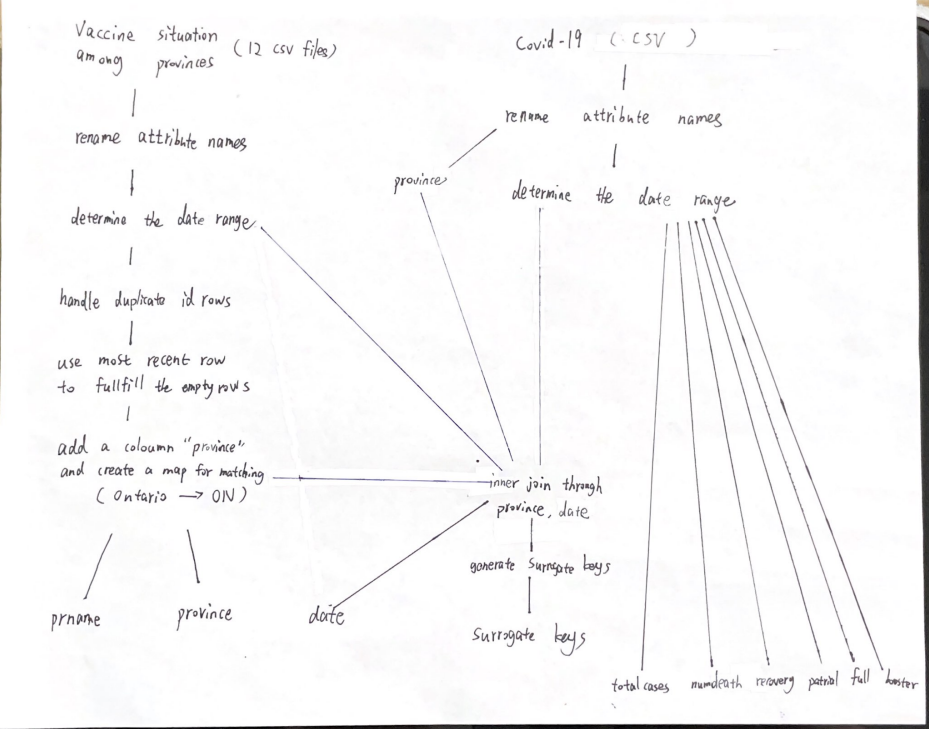 Vaccine situation
among provinces (12 csv files)
rename attribute names
determine the date range
handle duplicate id rows
use most recent row
to fullfill the empty rows
add a coloumn "province"
and create a map for matching
(Ontario → ON)
prname
province
Covid-19 (.CSV)
rename attribute names
province
determine the date range
inner join through
province, date
date
generate surrogate keys
surrogate keys
total cases
numdeath
recovery
patrial
full
booster